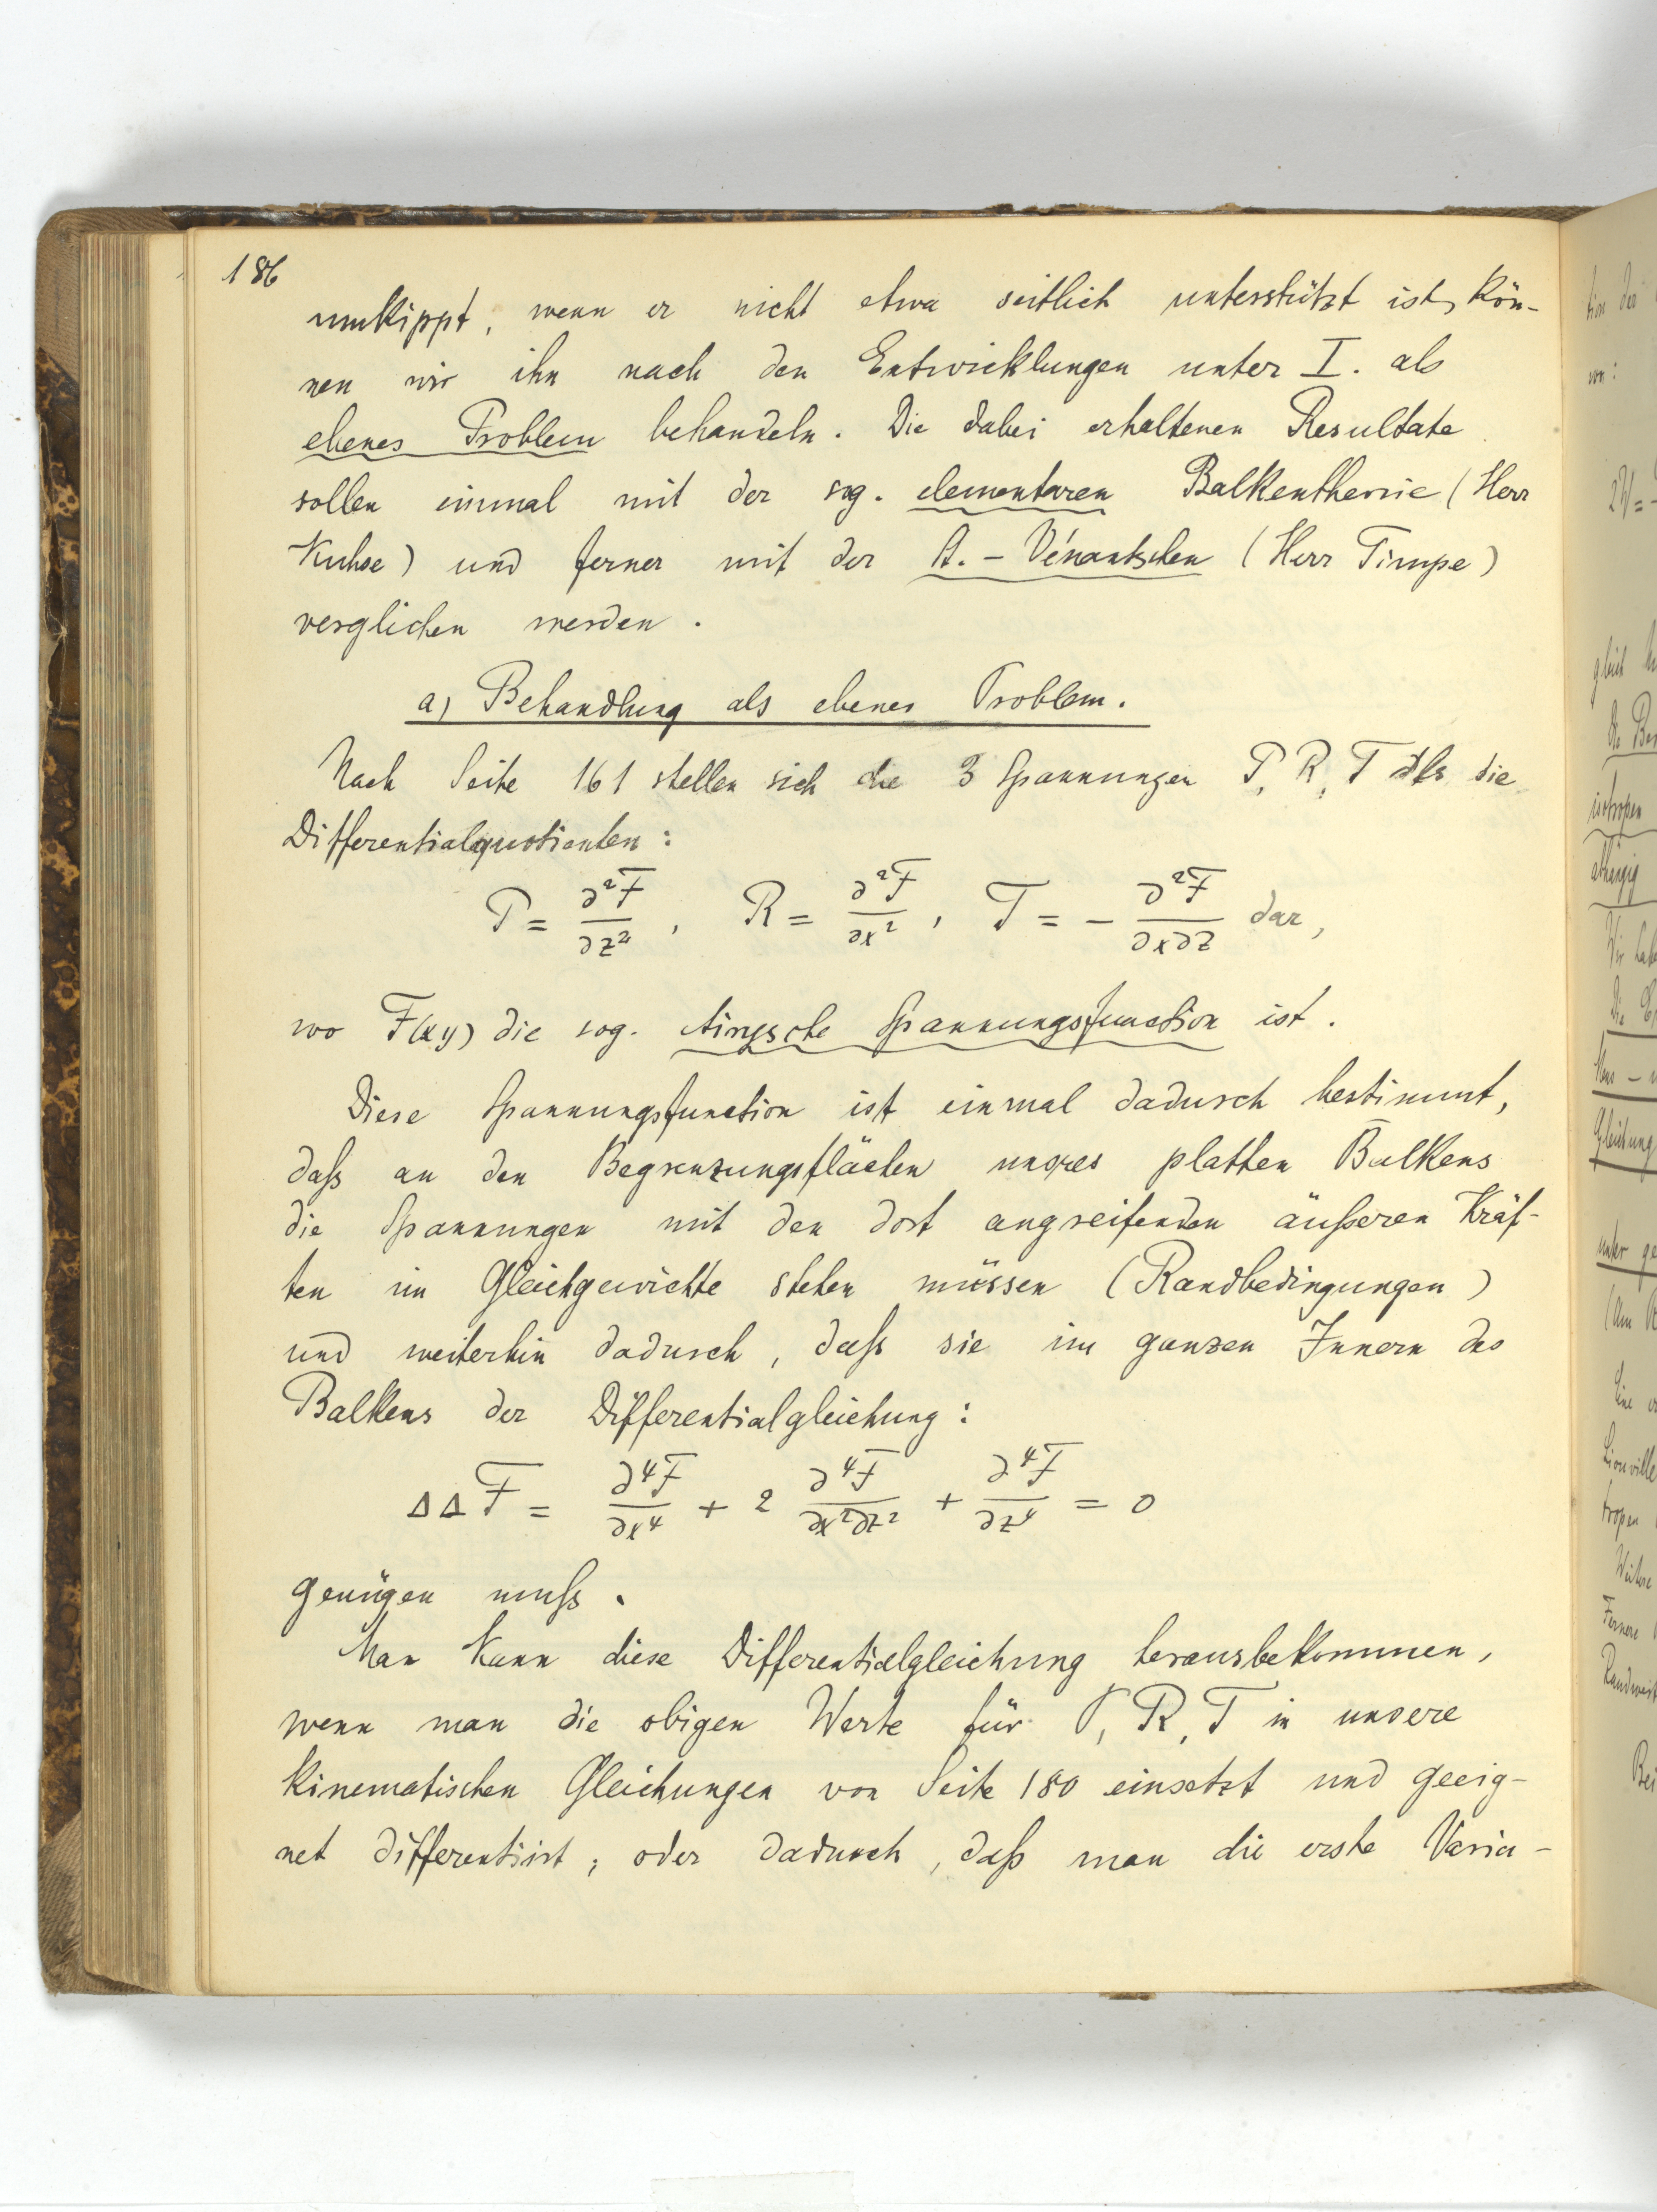 186
umkippt, wenn er nicht etwa seitlich unterstützt ist, kön-
nen wir ihn nach den Entwicklungen unter I. als
ebenes Problem behandeln. Die dabei erhaltenen Resultate
sollen einmal mit der sog. elementaren Balkentheorie (Herr
Kuhse) und ferner mit der St.-Vénantschen (Herr Timpe)
verglichen werden.
a) Behandlung als ebenes Problem.
Nach Seite 161 stellen sich die 3 Spannungen P, R, T als die
Differentialquotienten:
P = ∂²F/∂z², R = ∂²F/∂x², T = - ∂²F/∂x∂z dar,
wo F(xy) die sog. Airysche Spannungsfunction ist.
Diese Spannungsfunction ist einmal dadurch bestimmt,
daß an den Begrenzungsflächen unsres platten Balkens
die Spannungen mit den dort angreifenden äußeren Kräf-
ten im Gleichgewichte stehen müssen (Randbedingungen)
und weiterhin dadurch, daß sie im ganzen Innern des
Balkens der Differentialgleichung:
ΔΔF = ∂⁴F/∂x⁴ + 2 ∂⁴F/∂x²∂z² + ∂⁴F/∂z⁴ = 0
genügen muß.
Man kann diese Differentialgleichung herausbekommen,
wenn man die obigen Werte für P, R, T in unsere
kinematischen Gleichungen von Seite 180 einsetzt und geeig-
net differentiirt; oder dadurch, daß man die erste Varia-